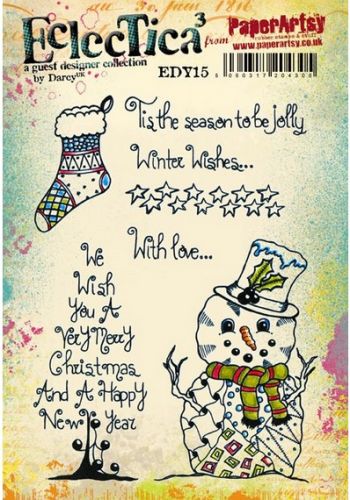 au 30 juin 1816
EClecTica³
from
PaperArtsy
rubber stamps & stuff
www.paperartsy.co.uk
a guest designer collection
by Darcy UK
EDY15
5 060317 204308
Tis the season to be jolly
Winter Wishes...
With love...
We
Wish
You A
Very Merry
Christmas
And A Happy
New Year